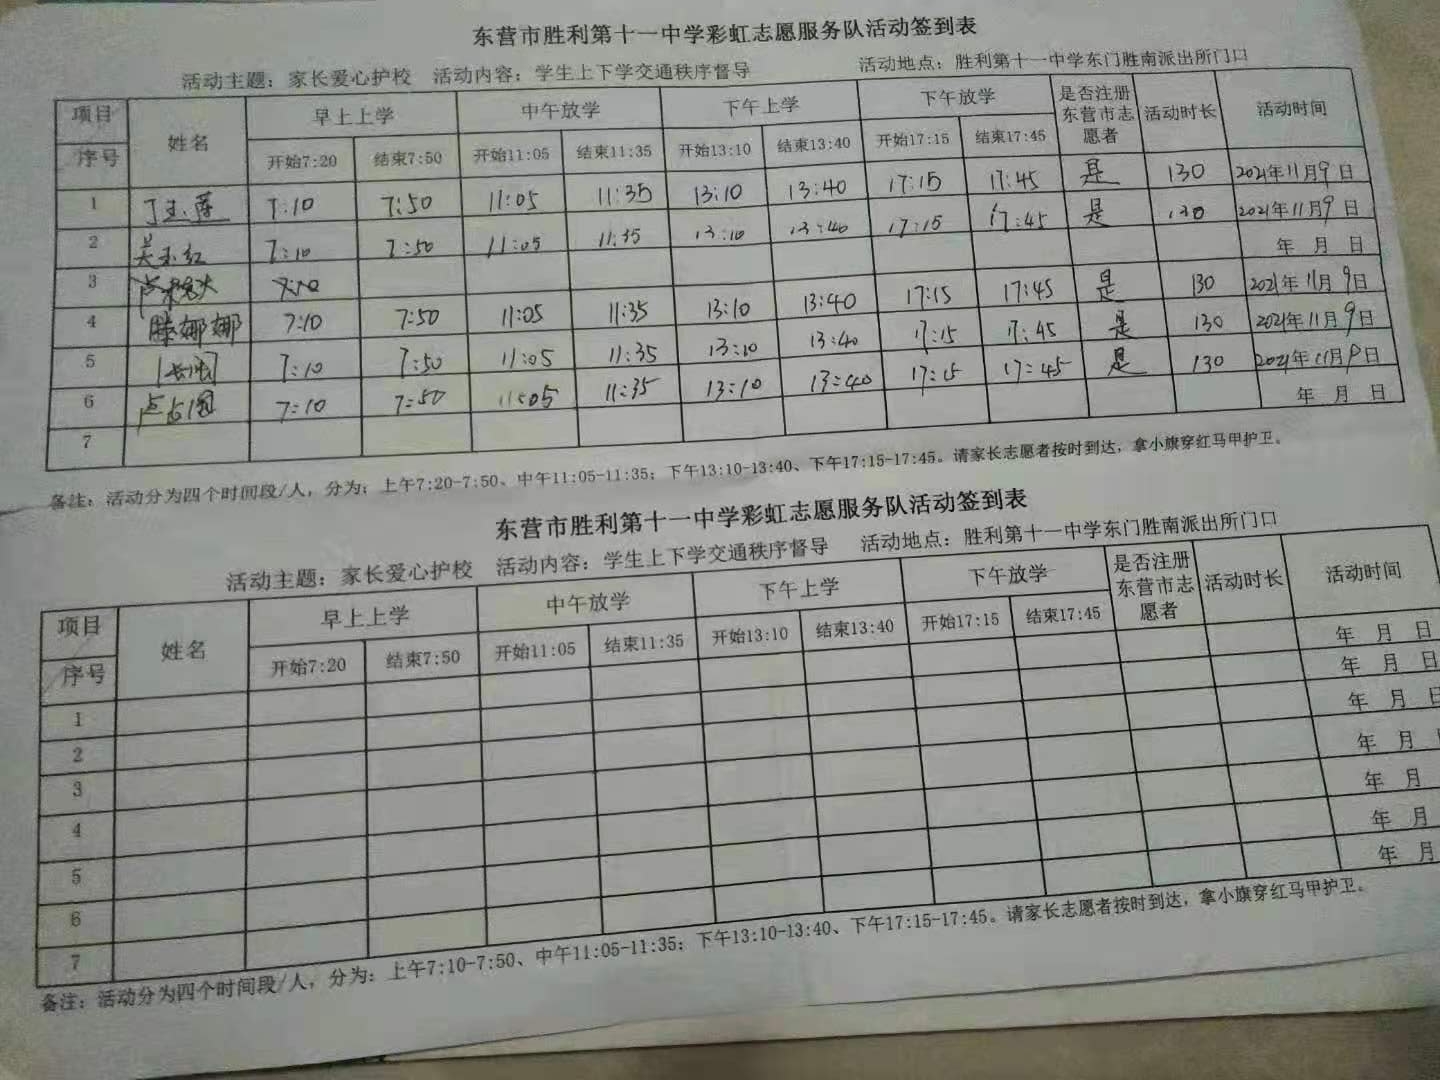 东营市胜利第十一中学彩虹志愿服务队活动签到表
活动主题：家长爱心护校 活动内容：学生上下学交通秩序督导 活动地点：胜利第十一中学东门胜南派出所门口
项目 姓名 早上上学 中午放学 下午上学 下午放学 是否注册东营市志愿者 活动时长 活动时间
序号 开始7:20 结束7:50 开始11:05 结束11:35 开始13:10 结束13:40 开始17:15 结束17:45
1 丁玉萍 7:10 7:50 11:05 11:35 13:10 13:40 17:15 17:45 是 130 2021年11月9日
2 吴玉红 7:10 7:50 11:05 11:35 13:10 13:40 17:15 17:45 是 130 2021年11月9日
3 7:10 年 月 日
4 滕娜娜 7:10 7:50 11:05 11:35 13:10 13:40 17:15 17:45 是 130 2021年11月9日
5 7:10 7:50 11:05 11:35 13:10 13:40 17:15 17:45 是 130 2021年11月9日
6 7:10 7:50 11:05 11:35 13:10 13:40 17:15 17:45 是 130 2021年11月9日
7 年 月 日
备注：活动分为四个时间段/人，分为：上午7:20-7:50、中午11:05-11:35；下午13:10-13:40、下午17:15-17:45。请家长志愿者按时到达，拿小旗穿红马甲护卫。
东营市胜利第十一中学彩虹志愿服务队活动签到表
活动主题：家长爱心护校 活动内容：学生上下学交通秩序督导 活动地点：胜利第十一中学东门胜南派出所门口
项目 姓名 早上上学 中午放学 下午上学 下午放学 是否注册东营市志愿者 活动时长 活动时间
序号 开始7:20 结束7:50 开始11:05 结束11:35 开始13:10 结束13:40 开始17:15 结束17:45
1 年 月 日
2 年 月 日
3 年 月 日
4 年 月
5 年 月
6 年 月
7 年 月
备注：活动分为四个时间段/人，分为：上午7:10-7:50、中午11:05-11:35；下午13:10-13:40、下午17:15-17:45。请家长志愿者按时到达，拿小旗穿红马甲护卫。